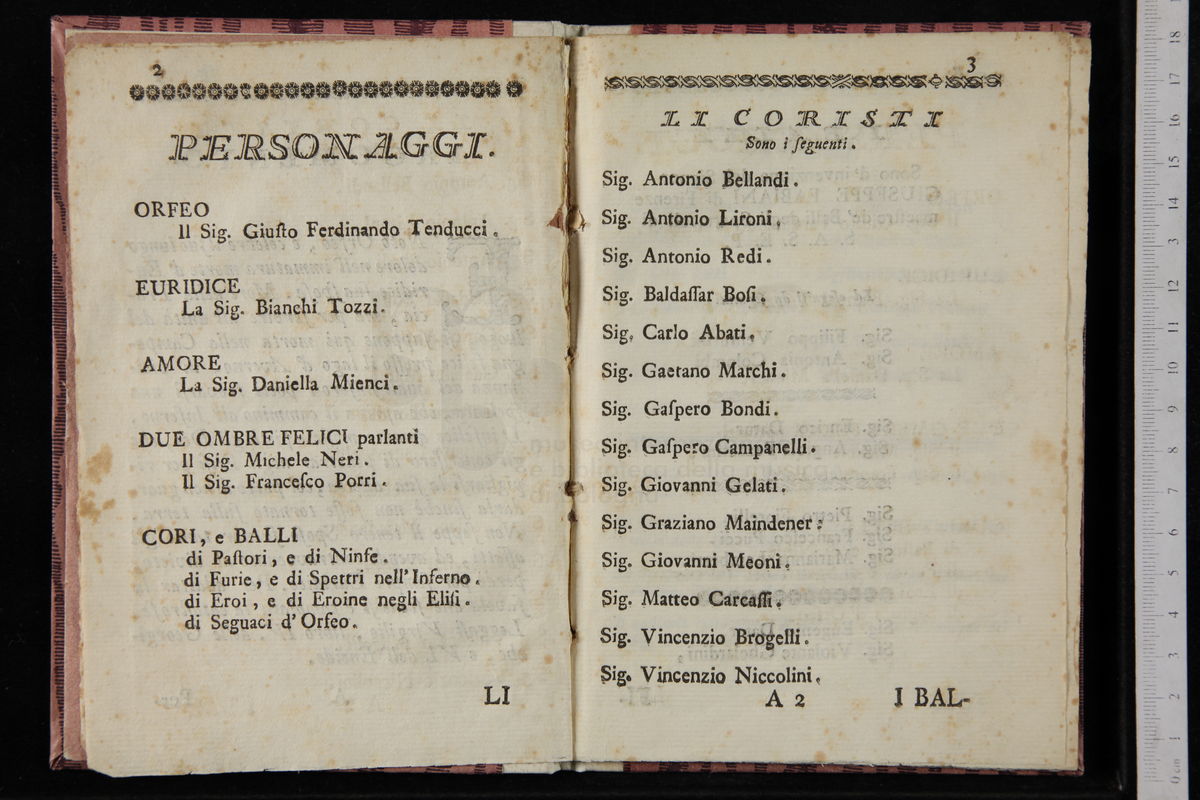 2
PERSONAGGI.
ORFEO
Il Sig. Giuſto Ferdinando Tenducci.
EURIDICE
La Sig. Bianchi Tozzi.
AMORE
La Sig. Daniella Mienci.
DUE OMBRE FELICI parlanti
Il Sig. Michele Neri.
Il Sig. Franceſco Porri.
CORI, e BALLI
di Paſtori, e di Ninfe.
di Furie, e di Spettri nell'Inferno.
di Eroi, e di Eroine negli Eliſi.
di Seguaci d'Orfeo.
LI
3
LI CORISTI
Sono i ſeguenti.
Sig. Antonio Bellandi.
Sig. Antonio Lironi.
Sig. Antonio Redi.
Sig. Baldaſſar Boſi.
Sig. Carlo Abati.
Sig. Gaetano Marchi.
Sig. Gaſpero Bondi.
Sig. Gaſpero Campanelli.
Sig. Giovanni Gelati.
Sig. Graziano Maindener.
Sig. Giovanni Meoni.
Sig. Matteo Carcaſſi.
Sig. Vincenzio Brogelli.
Sig. Vincenzio Niccolini.
A 2 I BAL-
0 cm 1 2 3 4 5 6 7 8 9 10 11 12 13 14 15 16 17 18